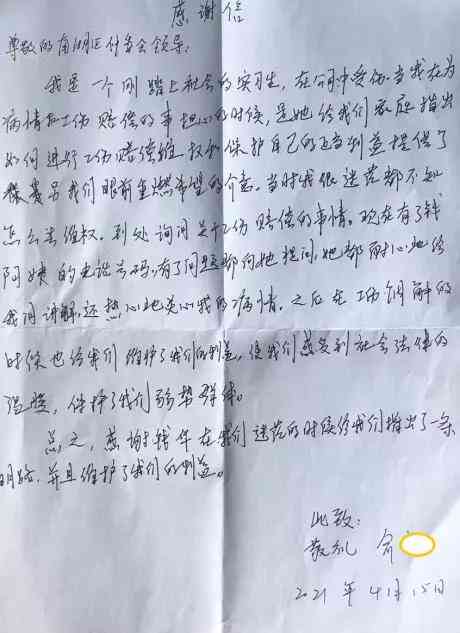 感谢信
尊敬的南明区什多会领导:
我是一个刚踏上社会的实习生,在公司中受伤,当我在为
病情和工伤赔偿的事担心的时候,是她给我们家庭指出
如何进行工伤赔偿维权和保护自己的正当利益提供了
我们眼前重燃希望的介意。当时我很迷茫都不知
怎么去维权。到处询问关于工伤赔偿的事情。现在有了钱
阿姨的电话号码,有了问题都向她提问,她都耐心地给
我们讲解,还热心地关心我的病情。之后在工伤调解的
时候也给我们维护了我们的利益,使我们感受到社会法律的
温暖,保护了我们弱势群体。
总之,感谢钱华在我们迷茫的时候给我们指出了一条
明路,并且维护了我们的利益。
此致:
敬礼 俞
2021年4月15日